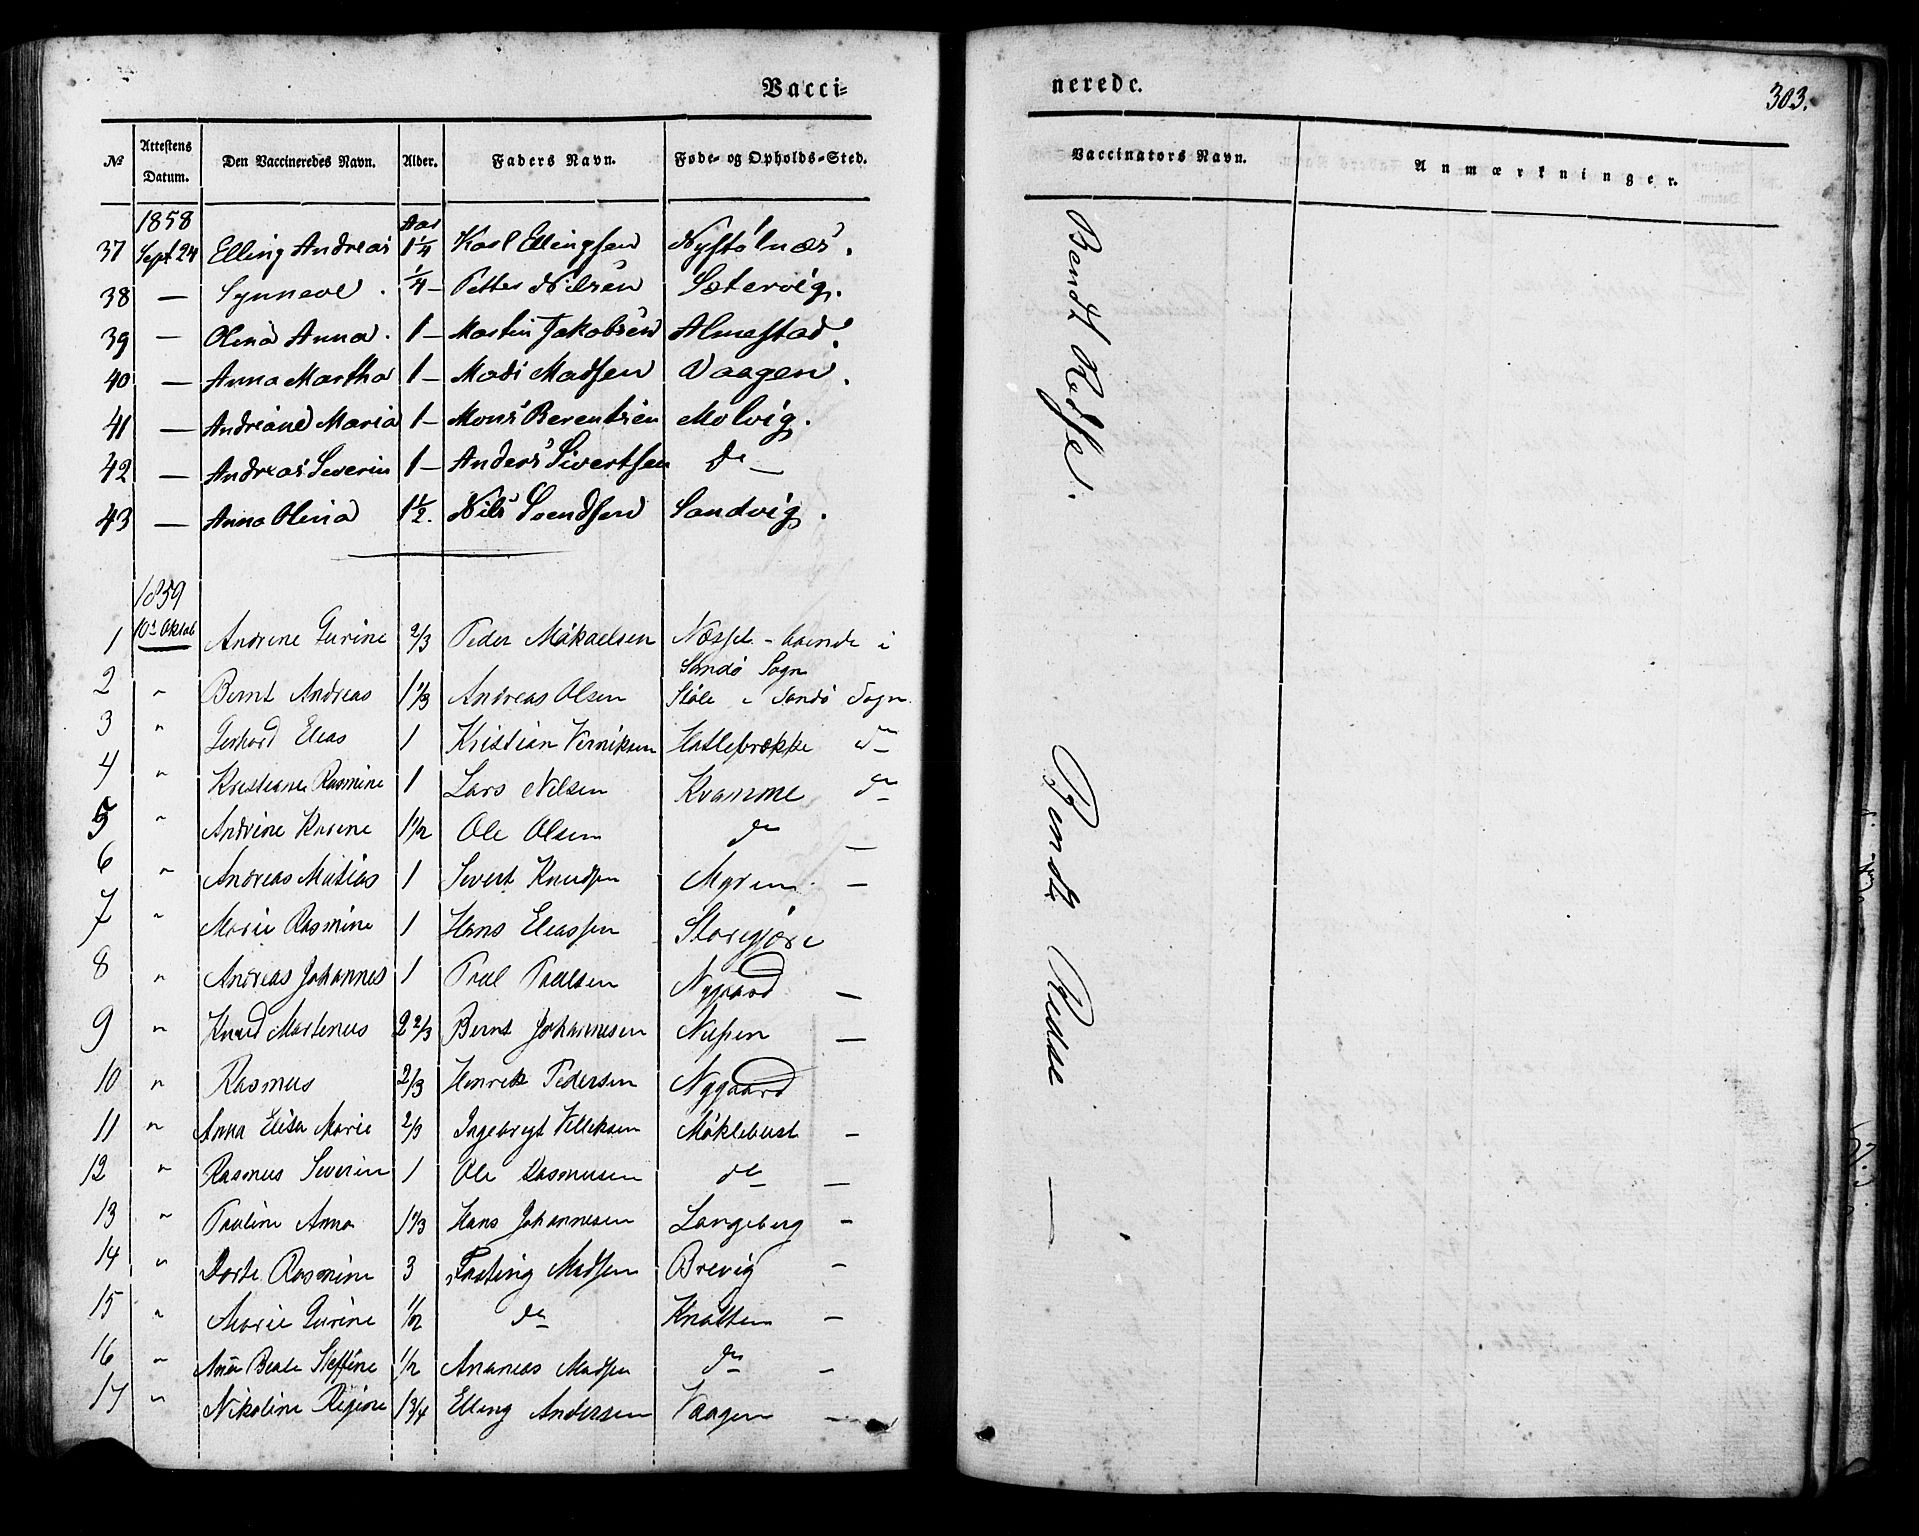 Vacci-
nerede.
303.
№ Attestens Datum. Den Vaccineredes Navn. Alder. Faders Navn. Føde- og Opholds-Sted. Vaccinators Navn. Anmærkninger.
1858 Aar
37 Sept 24 Elling Andreas 1¼ Karl Ellingsen Nystølnæs.
38 — Synneve ¼ — Petter Nilsen Sætervig.
39 — Olina Anna 1 — Martin Jakobsen Almestad.
40 — Anna Martha 1 — Mads Madsen Vaagen.
41 — Andriane Maria 1 — Mons Berentsen Molvig.
42 — Andreas Severin 1 — Anders Sivertsen do —
43 — Anna Olina 1½. Nils Svendsen Sandvig.
Bendt
1859
1 10de Oktob Andrine Gurine 2/3 Peder Mikaelsen boende i
Sandø Sogn
2 " Bernt Andreas 1 1/3 Andreas Olsen Støle i Sandø Sogn.
3 " Gerhard Elias 1 Kristian Hatlebrække do
4 " Kristiane Rasmine 1 Lars Nilsen Kvamme do
5 " Andrine Karine 1 1/2 Ole Olsen do —
6 " Andreas Matias 1 Sivert Knudsen Myren —
7 " Marie Rasmine 1 Hans Eliassen
8 " Andreas Johannes 1 Paul Paulsen Nygaard —
9 " Knud Martinus 2 2/3 Bernt Johannesen —
10 " Rasmus 2/3 Henrik Pedersen Nygaard
11 " Anna Elisa Marie 2/3 Ingebrigt Villiksen Møklebust —
12 " Rasmus Severin 1 Ole Rasmusen do —
13 " Pauline Anna 1 1/3 Hans Johannesen Langeberg —
14 " Dorte Rasmine 3 Fasting Madsen Brevig —
15 " Marie Gurine 1/2 do Knotten —
16 " Anne Beate Steffine 1/2 Ananias Madsen do —
17 " Nikoline Regine 1 3/4 Elling Andersen Vaagen —
Bendt Ridse —